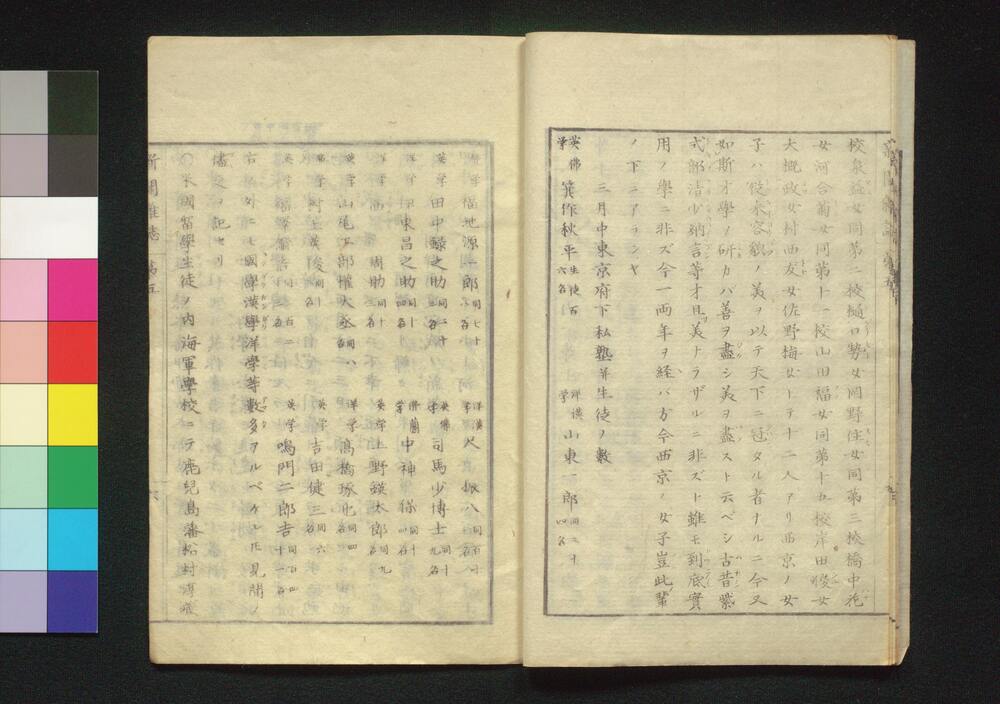 校泉益女同第二校樋口勢女岡野住女同第三校橋中花
女河合菊女同第十一校山田福女同第十九校岸田俊女
大概政女村西友女佐野梅女トテ十二人アリ西京ノ女
子ハ従来容貌ノ美ヲ以テ天下ニ冠タル者ナルニ今又
如斯才學ノ研カバ善ヲ盡シ美ヲ盡スト云ベシ古昔紫
式部清少納言等才且美トラザルニ非ズト雖モ到底實
用ノ學ニ非ズ今一両年ヲ経バ方今西京ノ女子豈此輩
ノ下ニアランヤ
三月中東京府下私塾并生徒ノ數
英佛學 箕作秋平 生徒百六名 洋漢學 山東一郎 同二十四名
福地源一郎 同七十 尺振八 同百十
英学 田中録之助 同二十 司馬少博士 同十九名
東昌之助 同十 中神保 同十四名
周助 同十 英学 上野鍈太郎 同九名
山尾工部權大丞 同八 洋学 高橋琢也 同四
村上英俊 英学 吉田健三 同六名
同百二 英学 鳴門二郎吉 同百四十一名
右ノ外ニモ國學漢學洋学等數多ヲルベケレ𪜈見聞ノ
儘之ヲ記セリ
〇米國留學生徒ノ内海軍學校ニテ鹿兒島藩松村淳藏
新聞雑誌 第五